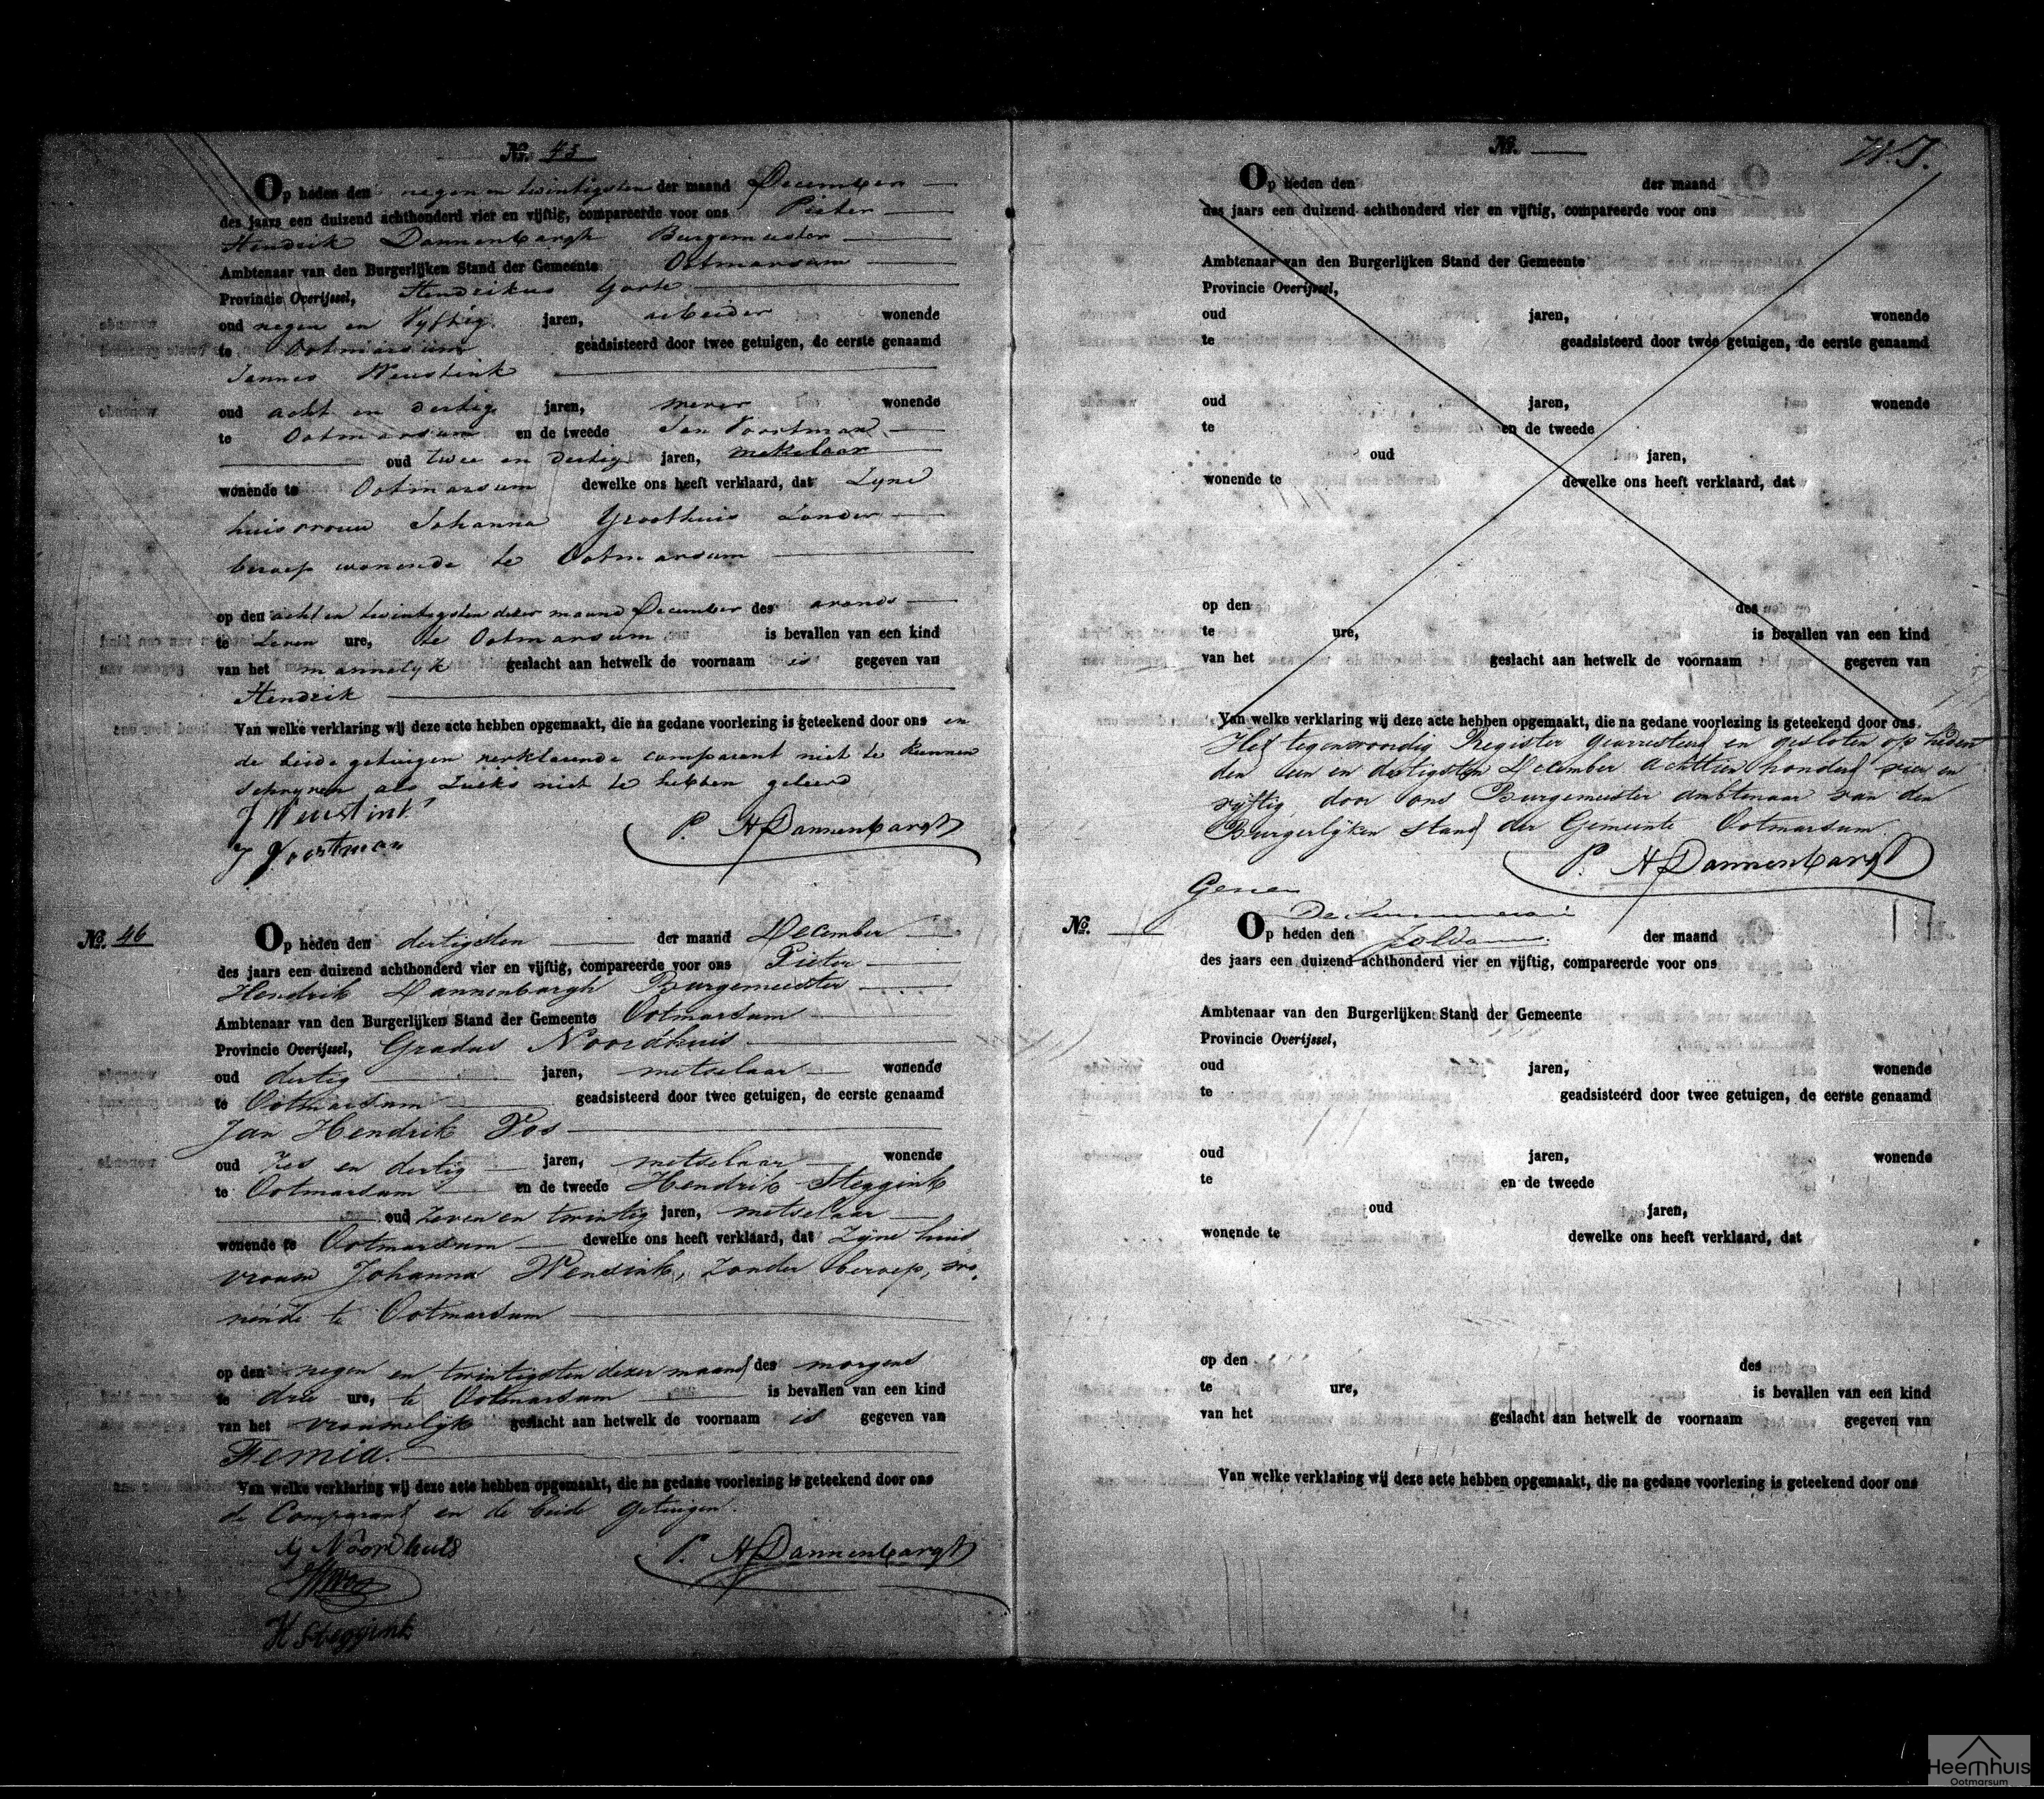 No. 45
Op heden den negen en twintigsten der maand December
des jaars een duizend achthonderd vier en vijftig, compareerde voor ons Pieter
Hendrik Dannenbargh Burgemeester
Ambtenaar van den Burgerlijken Stand der Gemeente Ootmarsum
Provincie Overijssel, Hendrikus
oud negen en Vyftig jaren, arbeider wonende
te Ootmarsum geadsisteerd door twee getuigen, de eerste genaamd
Jannes Neustink
oud acht en dertig jaren, wever wonende
te Ootmarsum en de tweede Jan Voortman
oud twee en dertig jaren, metselaar
wonende te Ootmarsum dewelke ons heeft verklaard, dat Zyne
huisvrouw Johanna Groothuis Zonder
beroep wonende te Ootmarsum
op den acht en twintigsten dezer maand December des avonds
te Zeven ure, te Ootmarsum is bevallen van een kind
van het mannelyk geslacht aan hetwelk de voornaam is gegeven van
Hendrik
Van welke verklaring wij deze acte hebben opgemaakt, die na gedane voorlezing is geteekend door ons en
de beide getuigen verklarende comparant niet te kunnen
schryven als Zulks niet te hebben geleerd
J Neustink
J Voortman
P. H Dannenbargh
No. 46
Op heden den dertigsten der maand December
des jaars een duizend achthonderd vier en vijftig, compareerde voor ons Pieter
Hendrik Dannenbargh Burgemeester
Ambtenaar van den Burgerlijken Stand der Gemeente Ootmarsum
Provincie Overijssel, Gradus Noordhuis
oud dertig jaren, metselaar wonende
te Ootmarsum geadsisteerd door twee getuigen, de eerste genaamd
Jan Hendrik Vos
oud Zes en dertig jaren, metselaar wonende
te Ootmarsum en de tweede Hendrik Steggink
oud Zeven en twintig jaren, metselaar
wonende te Ootmarsum dewelke ons heeft verklaard, dat Zyne huis
vrouw Johanna Wensink, Zonder beroep, wo
nende te Ootmarsum
op den negen en twintigsten dezer maand des morgens
te drie ure, te Ootmarsum is bevallen van een kind
van het vrouwelyk geslacht aan hetwelk de voornaam is gegeven van
Femia.
Van welke verklaring wij deze acte hebben opgemaakt, die na gedane voorlezing is geteekend door ons
de Comparant en de beide getuigen.
G Noordhuis
JHVos
H Steggink
P. H Dannenbargh
No.
Op heden den der maand
des jaars een duizend achthonderd vier en vijftig, compareerde voor ons
Ambtenaar van den Burgerlijken Stand der Gemeente
Provincie Overijssel,
oud jaren, wonende
te geadsisteerd door twee getuigen, de eerste genaamd
oud jaren, wonende
te en de tweede
oud jaren,
wonende te dewelke ons heeft verklaard, dat
op den des
te ure, is bevallen van een kind
van het geslacht aan hetwelk de voornaam gegeven van
Van welke verklaring wij deze acte hebben opgemaakt, die na gedane voorlezing is geteekend door ons.
Het tegenwoordig Register gearresteerd en gesloten op heden
den een en dertigsten December Achttien honderd vier en
vyftig door ons Burgemeester ambtenaar van den
Burgerlyken Stand der Gemeente Ootmarsum.
P. H Dannenbargh
No.
Op heden den der maand
des jaars een duizend achthonderd vier en vijftig, compareerde voor ons
Ambtenaar van den Burgerlijken Stand der Gemeente
Provincie Overijssel,
oud jaren, wonende
te geadsisteerd door twee getuigen, de eerste genaamd
oud jaren, wonende
te en de tweede
oud jaren,
wonende te dewelke ons heeft verklaard, dat
op den des
te ure, is bevallen van een kind
van het geslacht aan hetwelk de voornaam gegeven van
Van welke verklaring wij deze acte hebben opgemaakt, die na gedane voorlezing is geteekend door ons
Heemhuis
Ootmarsum